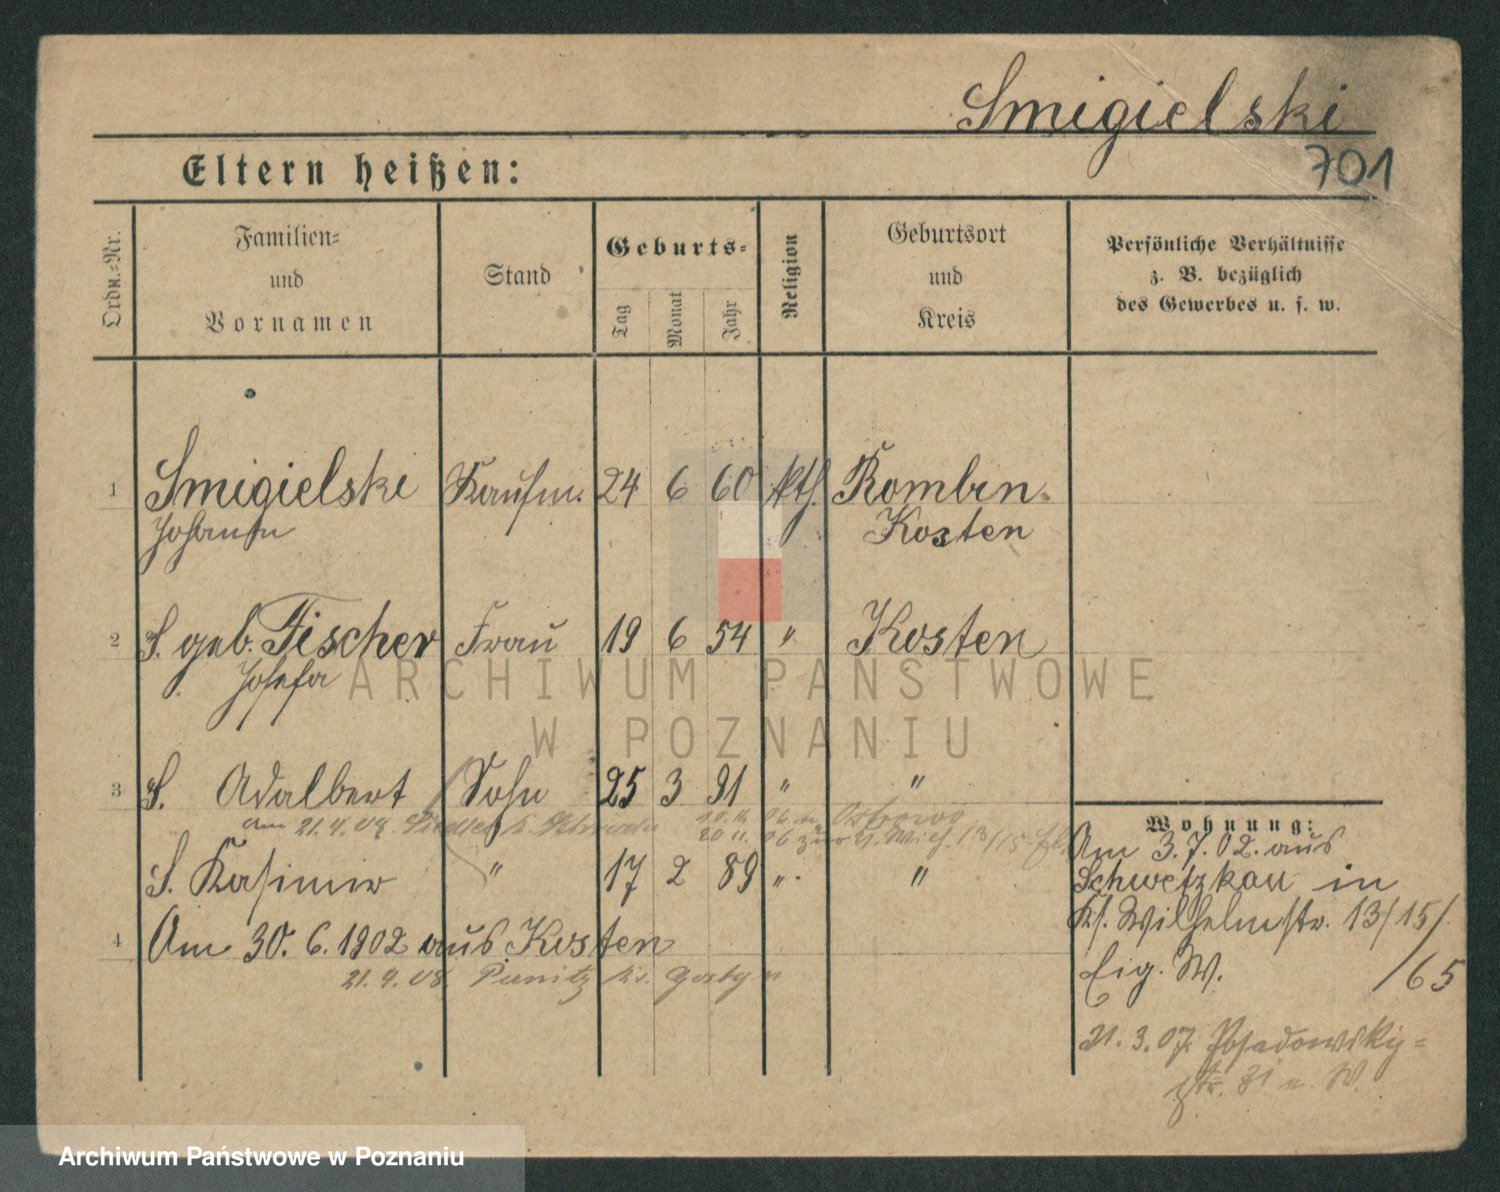 Smigielski
701
Eltern heißen:
Ordn.-Nr.
Familien-
und
Vornamen
Stand
Geburts-
Tag
Monat
Jahr
Religion
Geburtsort
und
Kreis
Persönliche Verhältnisse
z. B. bezüglich
des Gewerbes u. s. w.
1 Smigielski Kaufm. 24 6 60 kth. Rombin
Johann Kosten
2 S. geb. Fischer Frau 19 6 54 " Kosten
Josefa
ARCHIWUM PAŃSTWOWE
W POZNANIU
3 S. Adalbert Sohn 25 3 91 " "
am 21.4.08. 10.11. 06 n. Ostrowo
20 11. 06 zur 13/15
S. Kasimir " 17 2 89 " "
4 Am 30. 6. 1902 aus Kosten
21. 9. 08. Punitz Kr. Gostyn
Wohnung:
Am 3.7.02. aus
Schwetzkau in
Wilhelmstr. 13/15/
Eig. W. /65
21. 3. 07. Posadowsky-
str. 31 e. W.
Archiwum Państwowe w Poznaniu